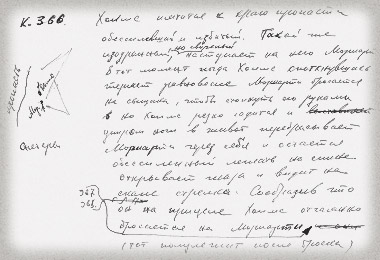 К. 366. Холмс пятится к краю пропасти
обессилевший и избитый. Такой же
изодранный, но свирепый
наступает на него Мориарти
В тот момент когда Холмс споткнувшись
теряет равновесие Мориарти бросается
на сыщика, чтобы столкнуть его руками
но Холмс резко садится и
ударом ноги в живот перебрасывает
Мориарти через себя и остается
обессиленный лежать на спине
открывает глаза и видит на
367.
368.
скале стрелка. Сообразив что
он на прицеле Холмс отчаянно
бросается на Мориарти
(тот
после броска)